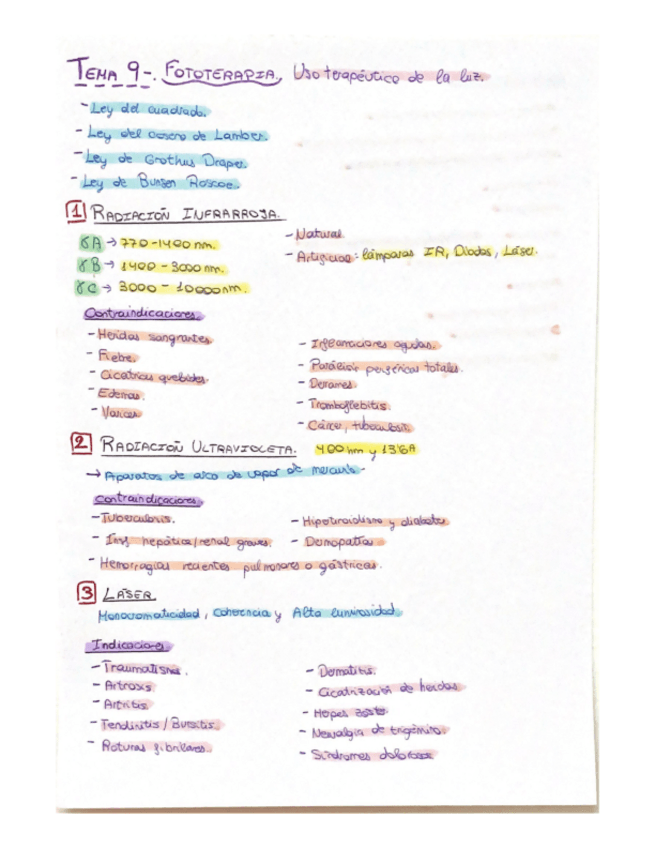 TEMA 9-. FOTOTERAPIA. Uso terapéutico de la luz.
- Ley del cuadrado.
- Ley del coseno de Lamber.
- Ley de Grothus Draper.
- Ley de Bunsen Roscoe.
1 RADIACIÓN INFRARROJA.
γA → 770-1400 nm.
γB → 1400 - 3000 nm.
γC → 3000 - 10000nm.
- Natural
- Artificial: lámparas IR, Diodos, Láser.
Contraindicaciones
- Heridas sangrantes
- Fiebre.
- Cicatrices queloides.
- Edemas.
- Varices
- Inflamaciones agudas.
- Parálisis periféricas totales.
- Derrames.
- Tromboflebitis.
- Cáncer, tuberculosis.
2 RADIACIÓN ULTRAVIOLETA. 400 nm y 13'6A
→ Aparatos de arco de vapor de mercurio.
Contraindicaciones
- Tuberculosis.
- Ins hepática/renal graves.
- Hemorragias recientes pulmonares o gástricas.
- Hipotiroidismo y diabetes
- Dermopatías
3 LÁSER.
Monocromaticidad, Coherencia y Alta luminosidad.
Indicaciones
- Traumatismos.
- Artrosis
- Artritis.
- Tendinitis / Bursitis.
- Roturas fibrilares.
- Dermatitis.
- Cicatrización de heridas.
- Herpes zoster
- Neuralgia de trigémino.
- Síndromes dolorosos